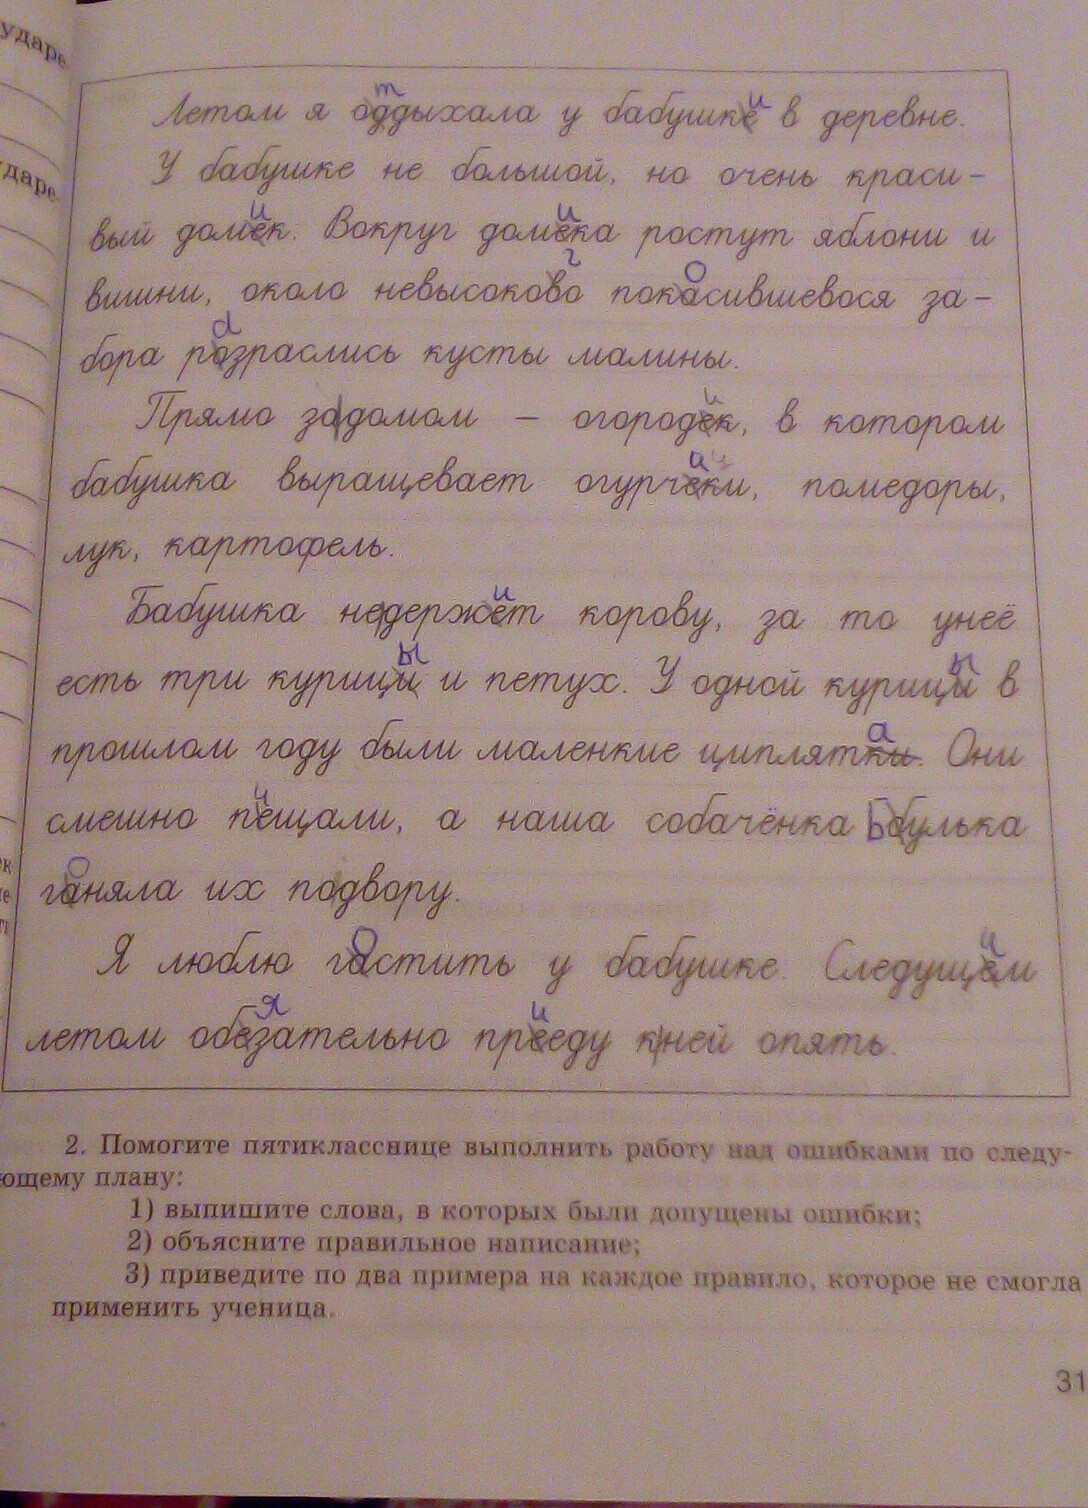 ударе
ударе
Летом я оддыхала у бабушке в деревне.
У бабушке не большой, но очень краси-
вый домек. Вокруг домека ростут яблони и
вишни, около невысоково покасившевося за-
бора розраслись кусты малины.
Прямо задомом – огородек, в котором
бабушка выращевает огурчеки, помедоры,
лук, картофель.
Бабушка недержет корову, за то унеё
есть три курици и петух. У одной курици в
прошлом году были маленкие циплятки. Они
смешно пещали, а наша собачёнка булька
ганяла их подвору.
Я люблю гастить у бабушке. Следущем
летом обезательно прееду кней опять.
2. Помогите пятикласснице выполнить работу над ошибками по следу-
ющему плану:
1) выпишите слова, в которых были допущены ошибки;
2) объясните правильное написание;
3) приведите по два примера на каждое правило, которое не смогла
применить ученица.
31